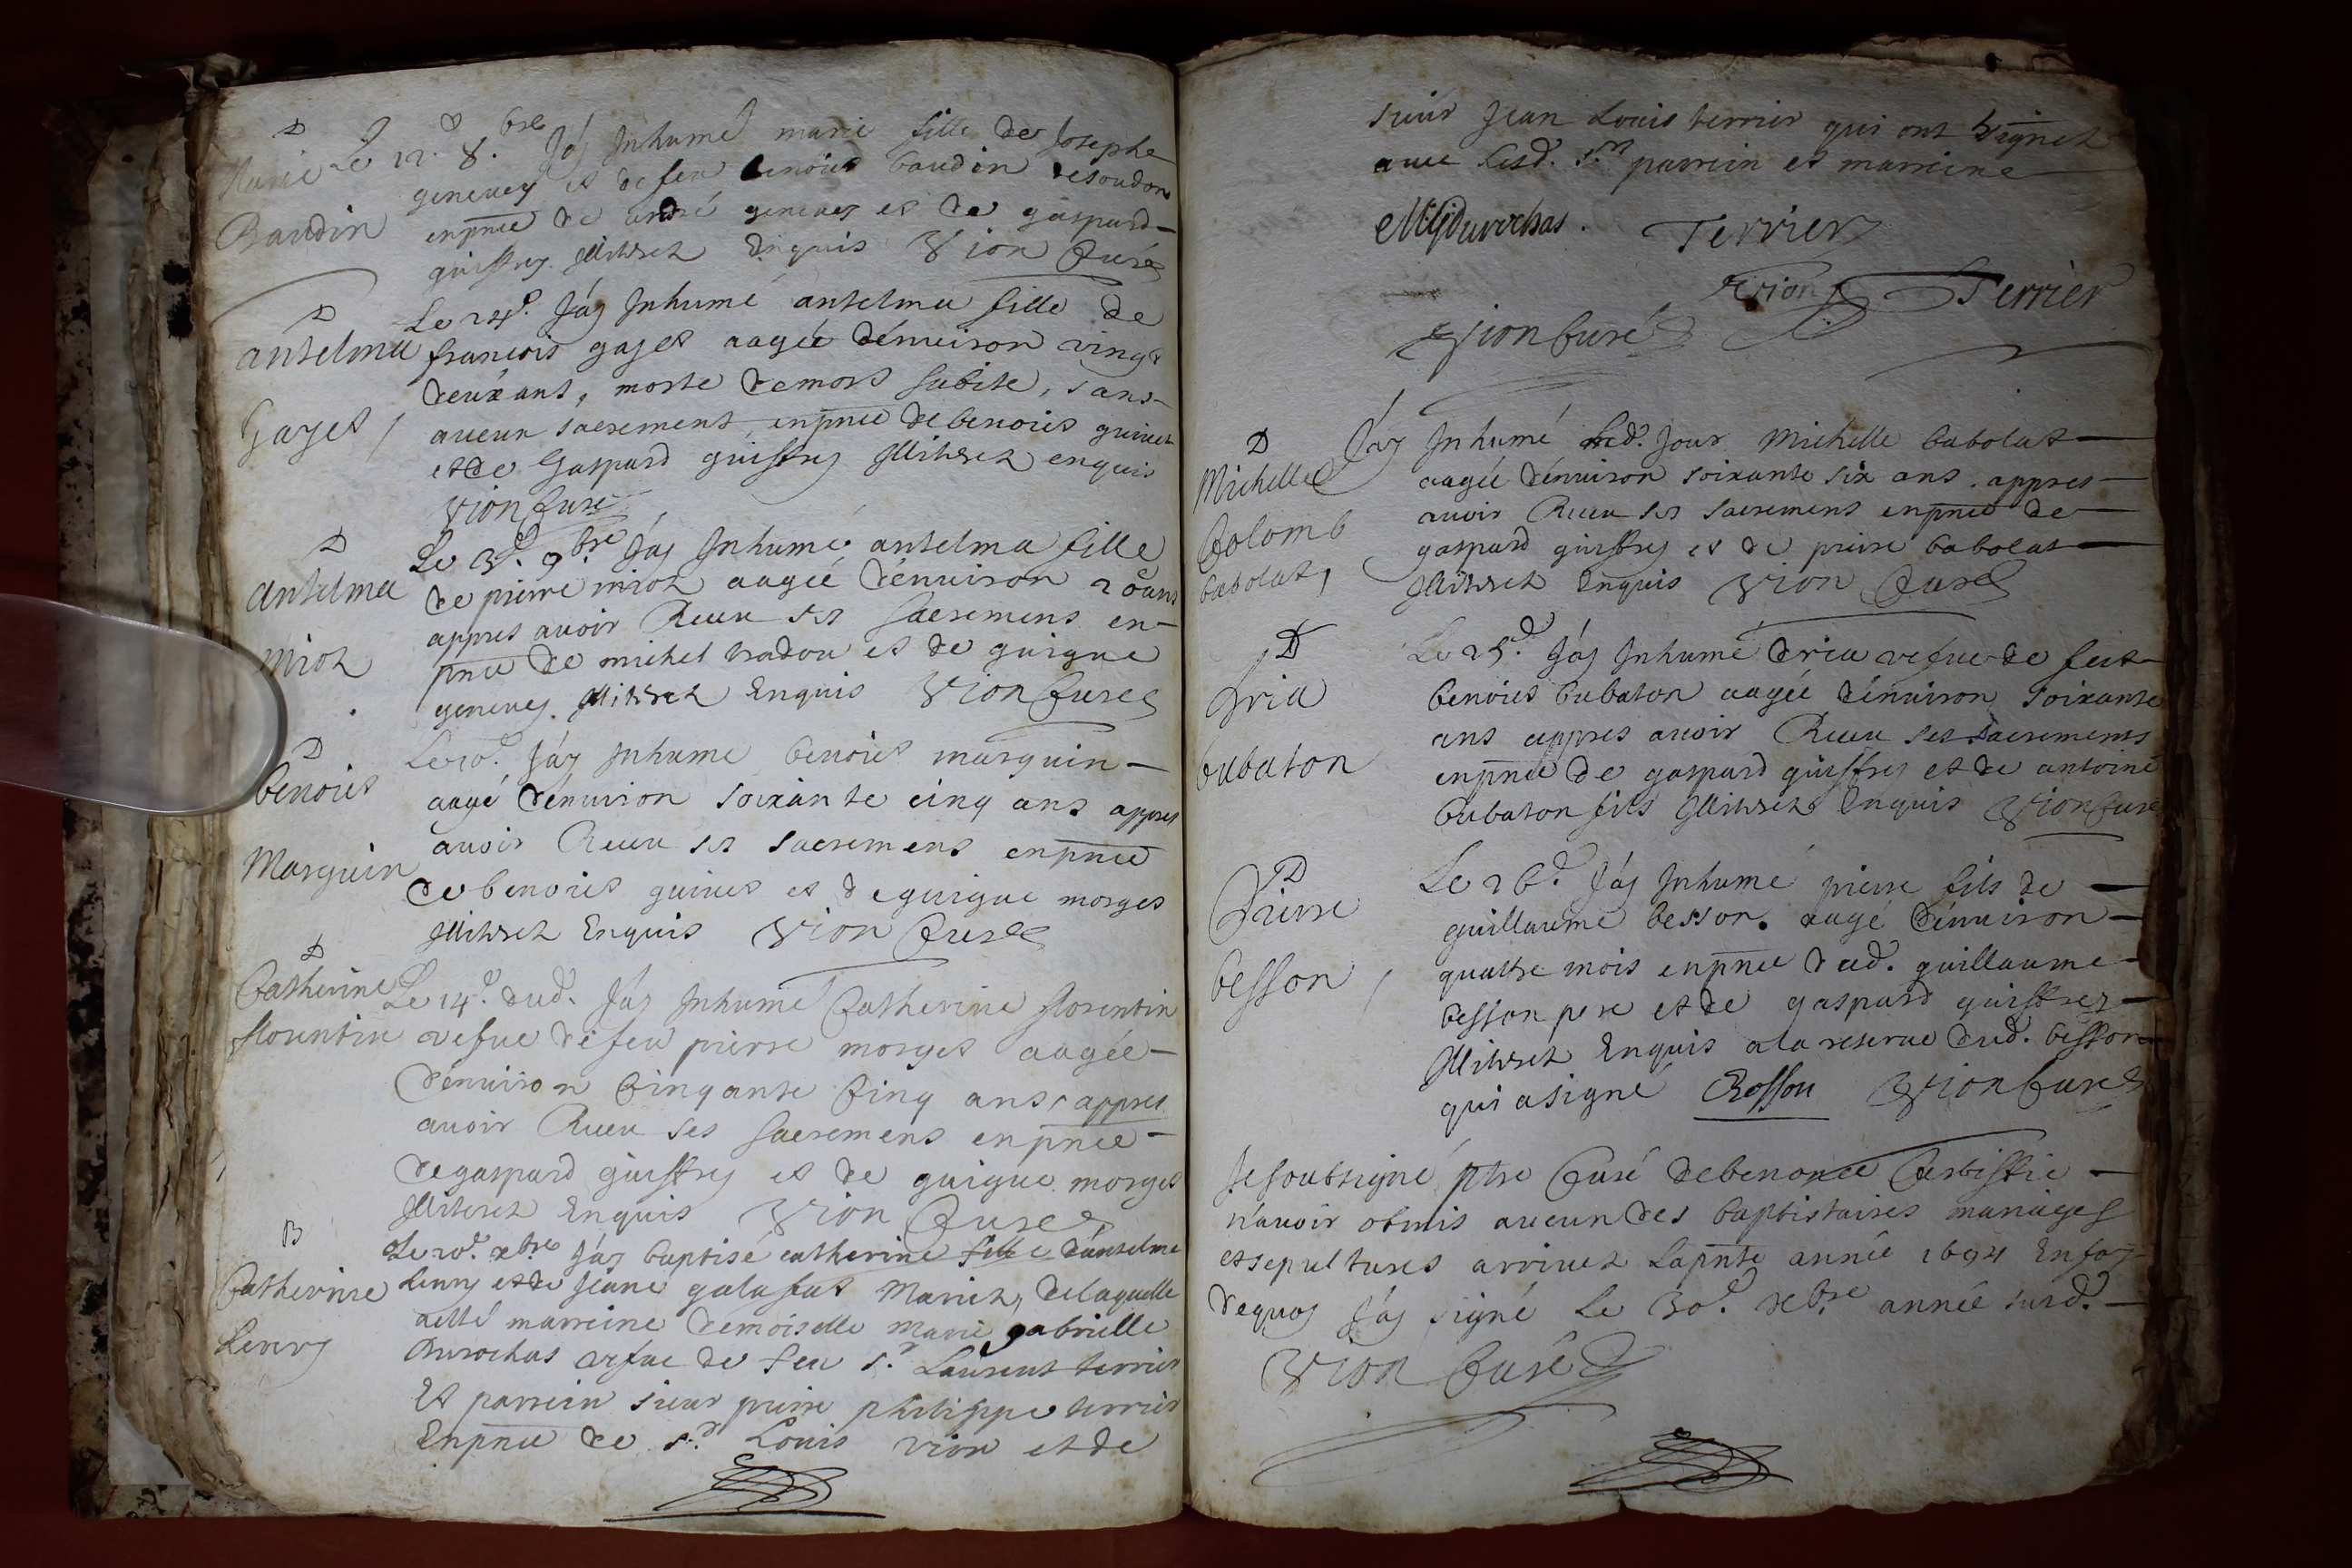 D
Marie
Baudin
Le 12.e 8.bre Jáy Inhumé marie fille de Josephe
geneuey et de feu benoict baudin desoudon
enpnce de andré geneuey et de gaspard
guiffrey illitrez Enquis Vion Curé
D
antelma
Gayet
Le 24.d Jáy Inhumé antelma fille de
francois gayet aagée dénuiron vingt
deux ans, morte de mort subite, sans
aucun sacrement enpnce de benoict guiuet
et de Gaspard guiffrey illitrez enquis
Vion Curé
D
antelma
mioz
Le 3.d 9.bre Jáy Inhumé antelma fille
de pierre mioz aagée dénuiron 20 ans
appres auoir Receu ses sacremens en
pnce de michel badou et de guigue
geneuey. illitrez Enquis Vion Curé
D
benoict
Marguin
Le 10.d Jáy Inhumé benoict marguin
aagé dénuiron soixante cinq ans appres
auoir Receu ses sacremens enpnce
de benoict guiuet et de guigue morges
illitrez Enquis Vion Curé
D
Catherine
florentin
Le 14.d dud. Jáy Inhumé Catherine florentin
vefue de feu pierre morges aagée
dénuiron Cinqante Cinq ans, appres
auoir Receu ses sacremens enpnce
de gaspard guiffrey et de guigue morges
illiterez Enquis Vion Curé
B
Catherine
Leury
Le 20.d xbre Jáy baptisé catherine fille dántelme
Leury et de Jeane galafat Mariez, de laquelle
a esté marreine demoiselle marie gabrielle
Durochas vefue de feu s.r Laurent terrier
Et parrein sieur pierre philippe terrier
Enpnce de s.r Louis vion et de
sieur Jean Louis terrier qui ont signez
auec lesd. s.rs parrein et marreine
MGdurochas. Terrier
Vion Terrier
Vion Curé
D
Michelle
Colomb
babolat,
Jáy Inhumé led. Jour Michelle babolat
aagée dénuiron soixante six ans appres
auoir Receu ses sacremens enpnce de
gaspard guiffrey et de pierre babolat
illitrez Enquis Vion Curé
D
bubaton
Le 25.d Jáy Inhumé vefue de feu
benoict bubaton aagée dénuiron soixante
ans appres auoir Receu ses sacremens
enpnce de gaspard guiffrey et de antoine
bubaton fils illitrez Enquis Vion Curé
D
Pierre
besson
Le 26.d Jáy Inhumé pierre fils de
guillaume besson. aagé dénuiron
quattre mois enpnce dud. guillaume
besson pere et de gaspard guiffrey
illitrez Enquis a la reserue dud. besson
qui a signé Besson Vion Curé
Je soubsigné ptre Curé de benonce Certiffie
n'auoir obmis aucun des baptistaires mariages
et sepultures arriuez Lapnte année 1694 En foy
dequoy Jáy signé Le 30.d xbre année susd.
Vion Curé